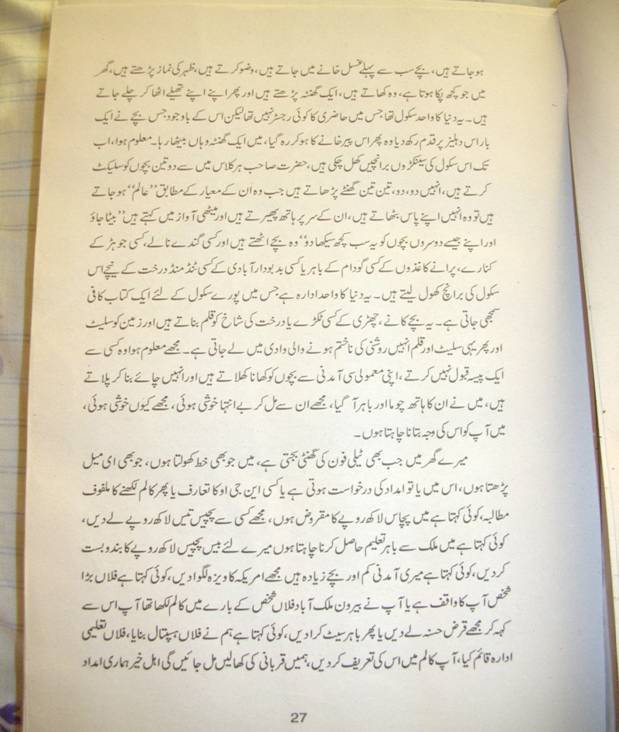 ہوجاتے ہیں، بچے سب سے پہلے غسل خانے میں جاتے ہیں، وضو کرتے ہیں، ظہر کی نماز پڑھتے ہیں، گھر
میں جو کچھ پکا ہوتا ہے، وہ کھاتے ہیں، ایک گھنٹہ پڑھتے ہیں اور پھر اپنے اپنے تھیلے اٹھا کر چلے جاتے
ہیں۔ یہ دنیا کا واحد سکول تھا جس میں حاضری کا کوئی رجسٹر نہیں تھا لیکن اس کے باوجود جس بچے نے ایک
بار اس دہلیز پر قدم رکھ دیا وہ پھر اس پیر خانے کا ہو کر رہ گیا، میں ایک گھنٹہ وہاں بیٹھا رہا۔ معلوم ہوا، اب
تک اس سکول کی سینکڑوں برانچیں کھل چکی ہیں، حضرت صاحب ہر کلاس میں سے دو تین بچوں کو سلیکٹ
کرتے ہیں، انہیں دو، دو، تین تین گھنٹے پڑھاتے ہیں جب وہ ان کے معیار کے مطابق ”عالم“ ہو جاتے
ہیں تو وہ انہیں اپنے پاس بٹھاتے ہیں، ان کے سر پر ہاتھ پھیرتے ہیں اور میٹھی آواز میں کہتے ہیں ”بیٹا جاؤ
اور اپنے جیسے دوسروں بچوں کو یہ سب کچھ سیکھا دو“ وہ بچے اٹھتے ہیں اور کسی گندے نالے، کسی جوہڑ کے
کنارے، پرانے کاغذوں کے کسی گودام کے باہر یا کسی بدبودار آبادی کے کسی ٹنڈ منڈ درخت کے نیچے اس
سکول کی برانچ کھول لیتے ہیں۔ یہ دنیا کا واحد ادارہ ہے جس میں پورے سکول کے لئے ایک کتاب کافی
سمجھی جاتی ہے۔ یہ بچے کانے، چھڑی کے کسی ٹکڑے یا درخت کی شاخ کو قلم بناتے ہیں اور زمین کو سلیٹ
اور پھر یہی سلیٹ اور قلم انہیں روشنی کی نا ختم ہونے والی وادی میں لے جاتی ہے۔ مجھے معلوم ہوا وہ کسی سے
ایک پیسہ قبول نہیں کرتے، اپنی معمولی سی آمدنی سے بچوں کو کھانا کھلاتے ہیں اور انہیں چائے بنا کر پلاتے
ہیں، میں نے ان کا ہاتھ چوما اور باہر آ گیا، مجھے ان سے مل کر بے انتہا خوشی ہوئی، مجھے کیوں خوشی ہوئی،
میں آپ کو اس کی وجہ بتانا چاہتا ہوں۔
میرے گھر میں جب بھی ٹیلی فون کی گھنٹی بجتی ہے، میں جو بھی خط کھولتا ہوں، جو بھی ای میل
پڑھتا ہوں، اس میں یا تو امداد کی درخواست ہوتی ہے یا کسی این جی او کا تعارف یا پھر کالم لکھنے کا ملفوف
مطالبہ، کوئی کہتا ہے میں پچاس لاکھ روپے کا مقروض ہوں، مجھے کسی سے پچیس تیس لاکھ روپے لے دیں،
کوئی کہتا ہے میں ملک سے باہر تعلیم حاصل کرنا چاہتا ہوں میرے لئے بیس پچیس لاکھ روپے کا بندوبست
کر دیں، کوئی کہتا ہے میری آمدنی کم اور بچے زیادہ ہیں مجھے امریکہ کا ویزہ لگوا دیں، کوئی کہتا ہے فلاں بڑا
شخص آپ کا واقف ہے یا آپ نے بیرون ملک آباد فلاں شخص کے بارے میں کالم لکھا تھا آپ اس سے
کہہ کر مجھے قرض حسنہ لے دیں یا پھر باہر سیٹ کرا دیں، کوئی کہتا ہے ہم نے فلاں ہسپتال بنایا، فلاں تعلیمی
ادارہ قائم کیا، آپ کالم میں اس کی تعریف کر دیں، ہمیں قربانی کی کھالیں مل جائیں گی اہل خیر ہماری امداد
27